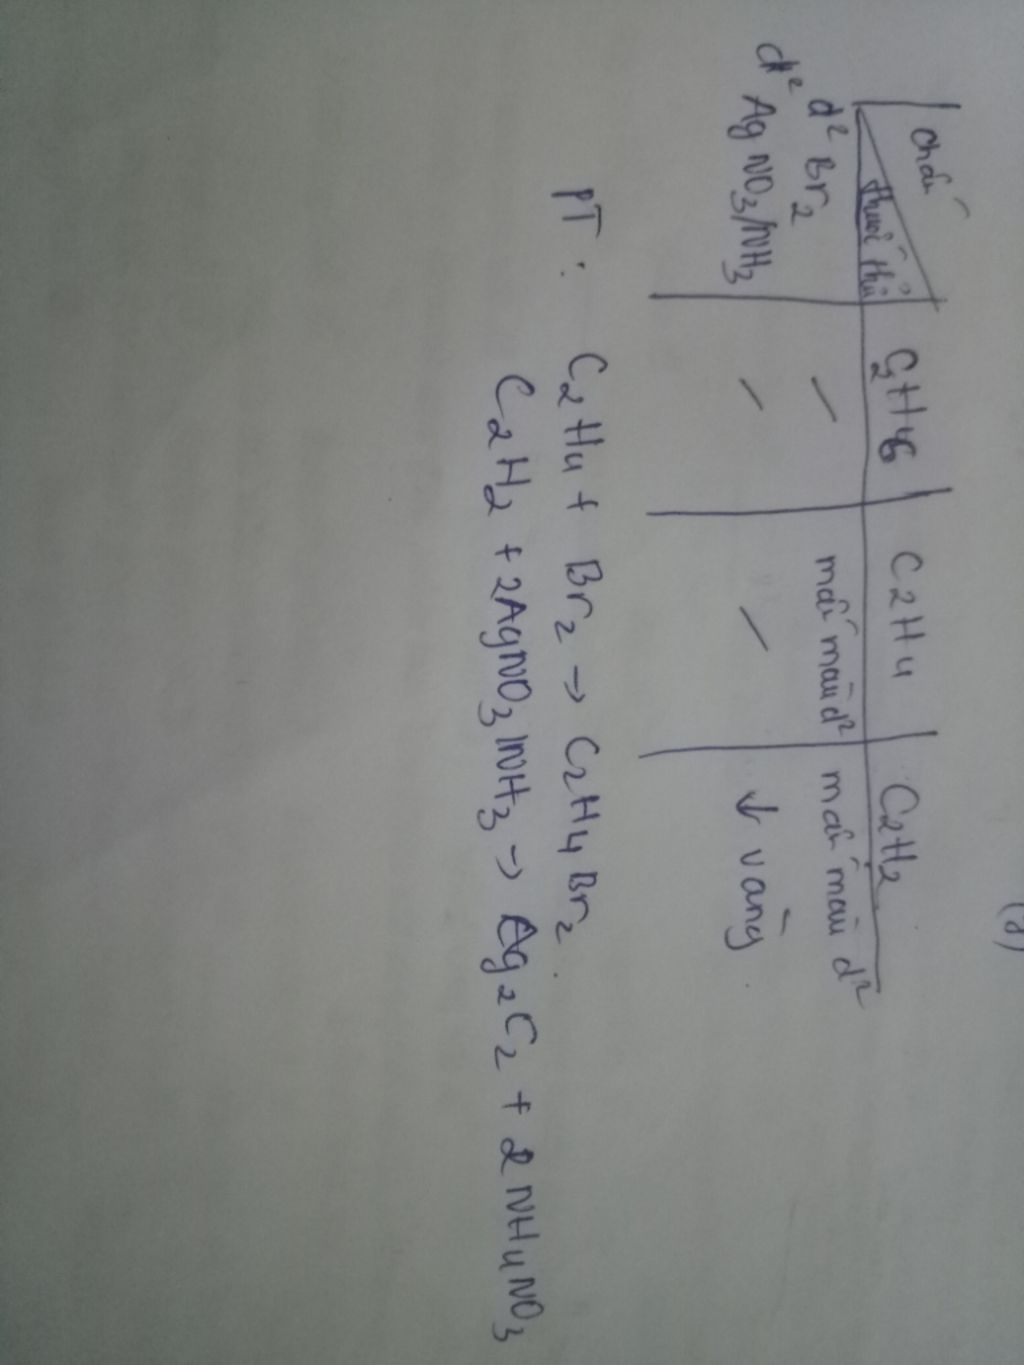 (2)
Chất
thuốc thử
C2H6
C2H4
C2H2
d² Br2
mất màu d²
mất màu d²
d² AgNO3/NH3
↓ vàng.
PT : C2H4 + Br2 → C2H4Br2.
C2H2 + 2AgNO3/NH3 → Ag2C2 + 2NH4NO3